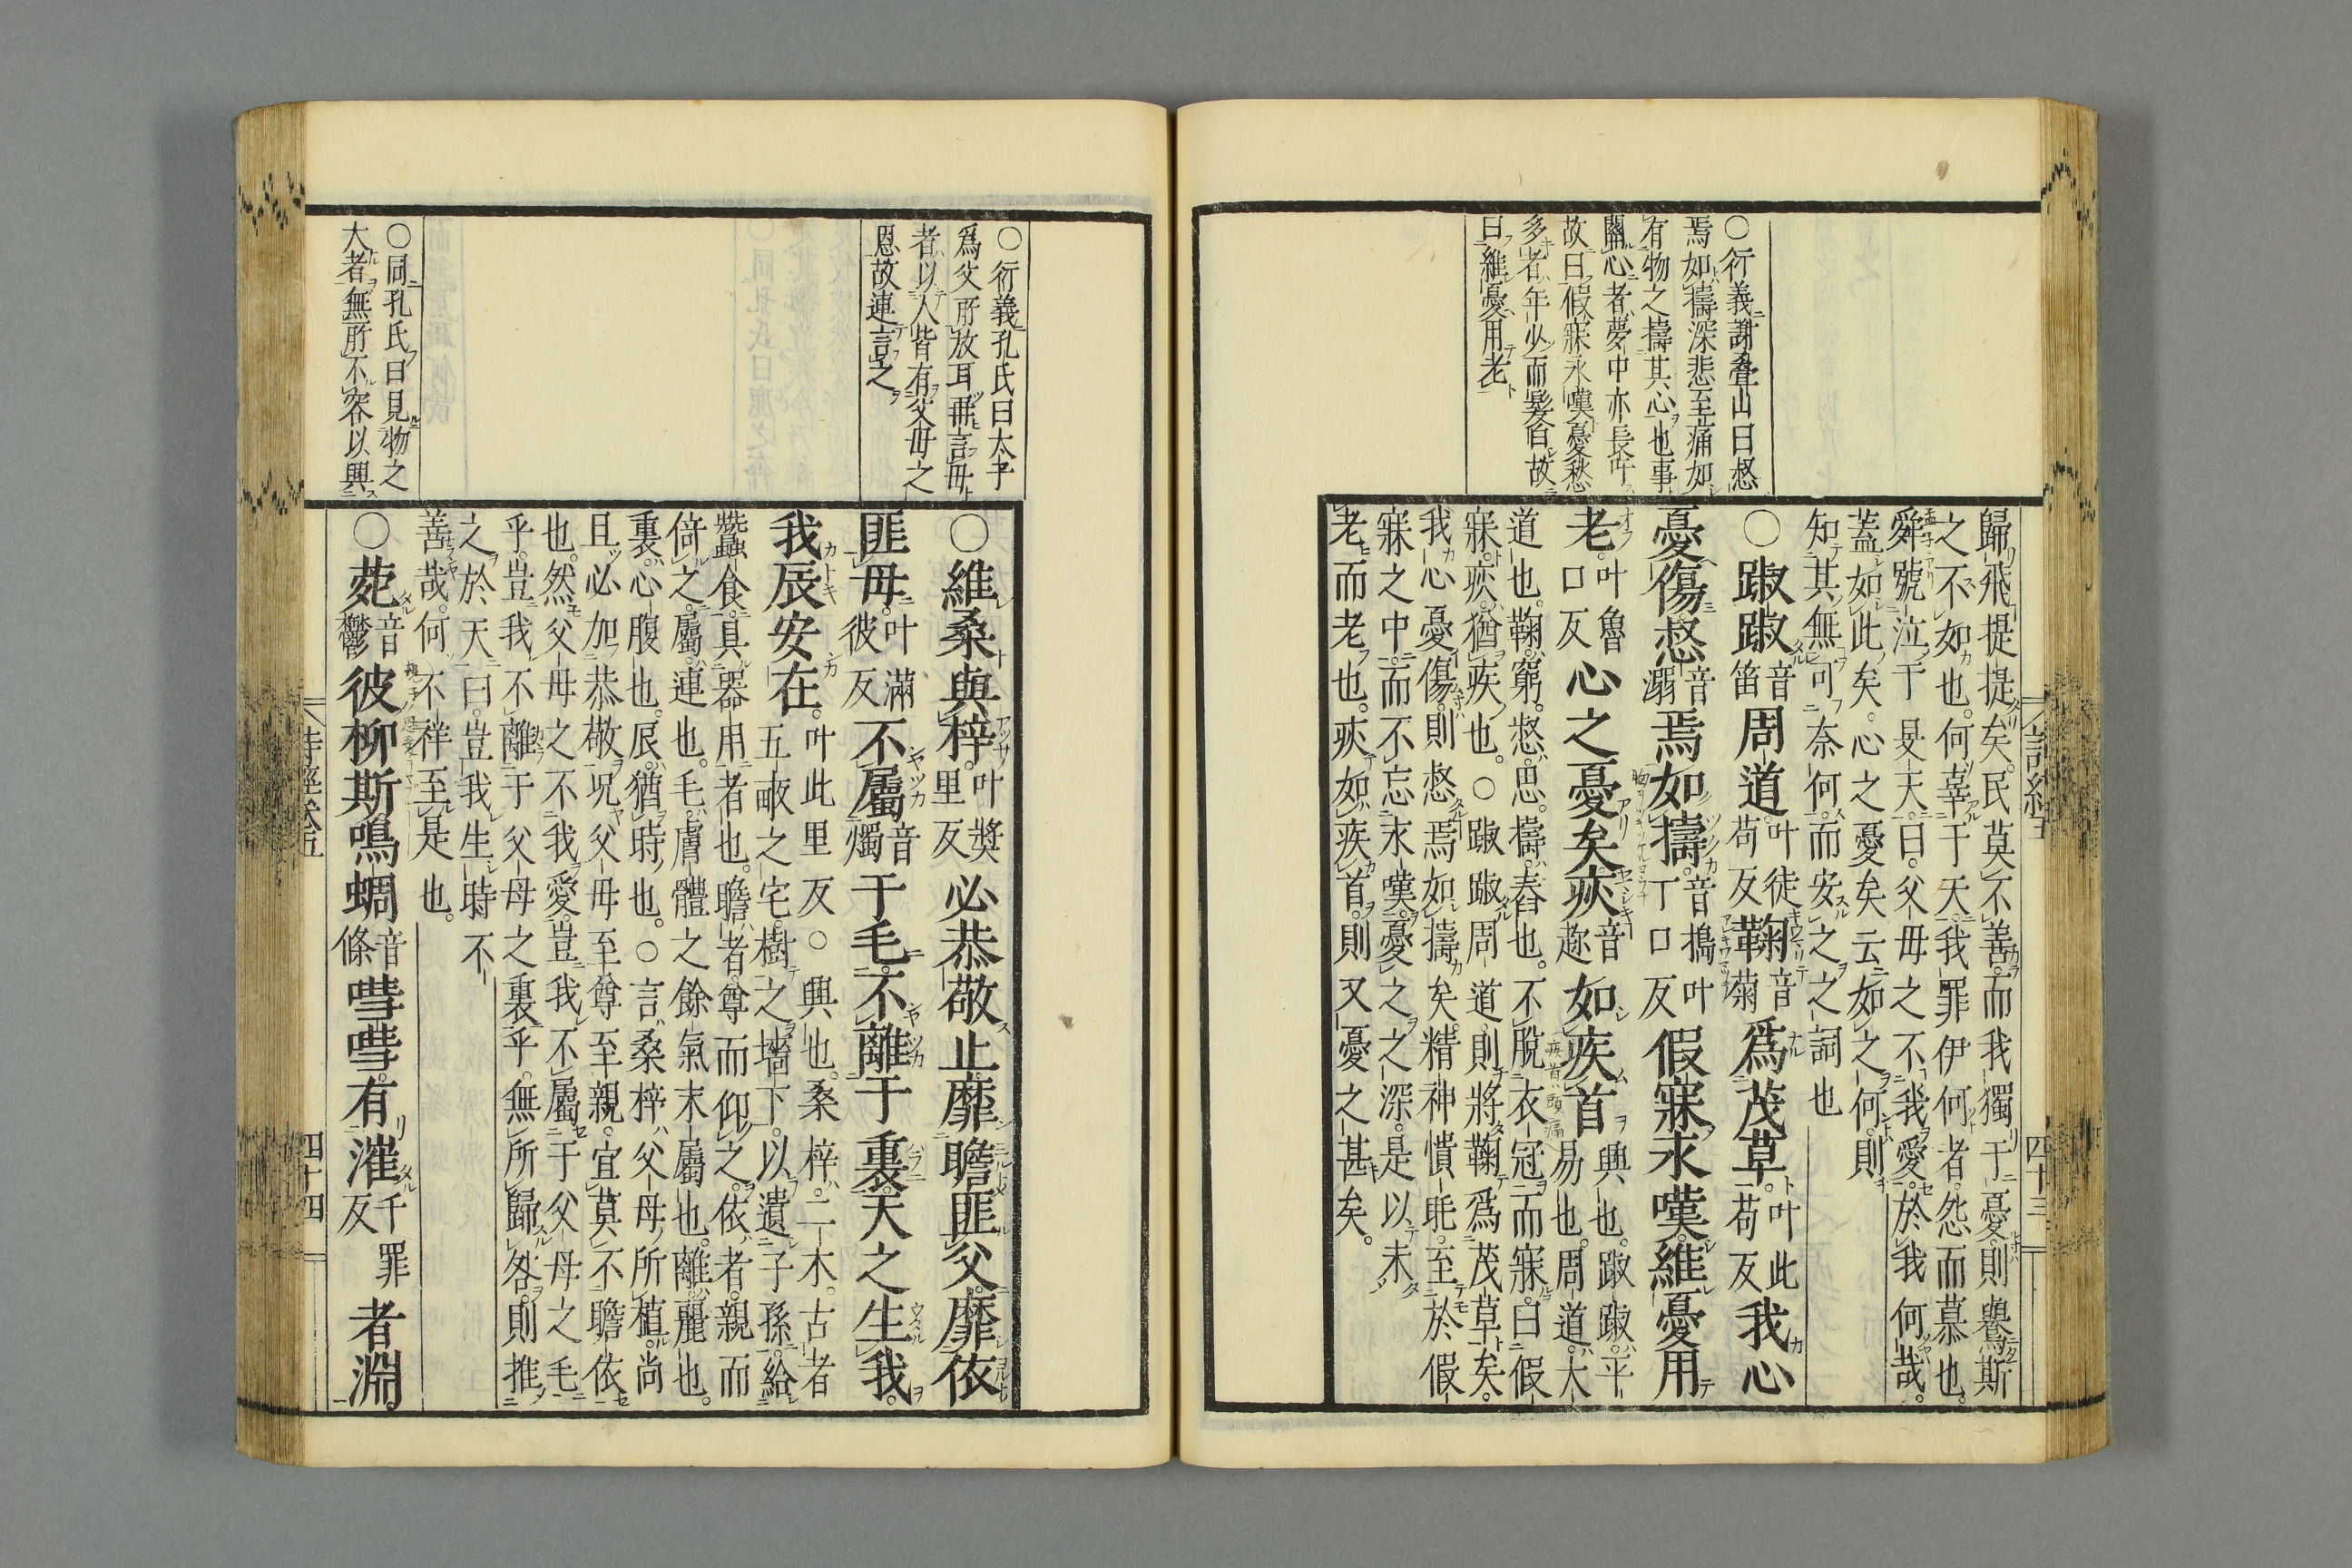 ○衍義謝疊山曰惄
焉如擣深悲至痛如
有物之擣其心也事
關心者夢中亦長吁
故曰假寐永嘆憂愁
多者年少而髮白故
曰維憂用老
歸飛提提矣民莫不善而我獨于憂則鸒斯
之不如也何辜于天我罪伊何者怨而慕也
舜號泣于旻天曰父母之不我愛於我何哉
蓋如此矣心之憂矣云如之何則
知其無可奈何而安之之詞也
○踧踧音笛周道叶徒苟反鞠音菊爲茂草叶此苟反我心
憂傷惄音溺焉如擣音搗叶丁口反假寐永嘆維憂用
老叶魯口反心之憂矣疢音趂如疾首興也踧踧平易也周道大
道也鞠窮惄思擣舂也不脫衣冠而寐曰假
寐疢猶疾也○踧踧周道則將鞠爲茂草矣
我心憂傷則惄焉如擣矣精神憒眊至於假
寐之中而不忘永嘆憂之之深是以未
老而老也疢如疾首則又憂之甚矣
詩經五
四十三
○衍義孔氏曰太子
爲父所放耳冊言母
者以人皆有父母之
恩故連言之
○同孔氏曰見物之
大者無所不容以興
○維桑與梓叶獎里反必恭敬止靡瞻匪父靡依
匪母叶滿彼反不屬音燭于毛不離于裏天之生我
我辰安在叶此里反○興也桑梓二木古者五畝之宅樹之墻下以遺子孫給
蠶食具器用者也瞻者尊而仰之依者親而
倚之屬連也毛膚體之餘氣末屬也離麗也
裏心腹也辰猶時也○言桑梓父母所植尚
且必加恭敬况父母至尊至親宜莫不瞻依
也然父母之不我愛豈我不屬于父母之毛
乎豈我不離于父母之裏乎無所歸咎則推
之於天曰豈我生時不
善哉何不祥至是也
○菀音鬱彼柳斯鳴蜩音條嘒嘒有漼千罪反者淵
詩經卷五
四十四